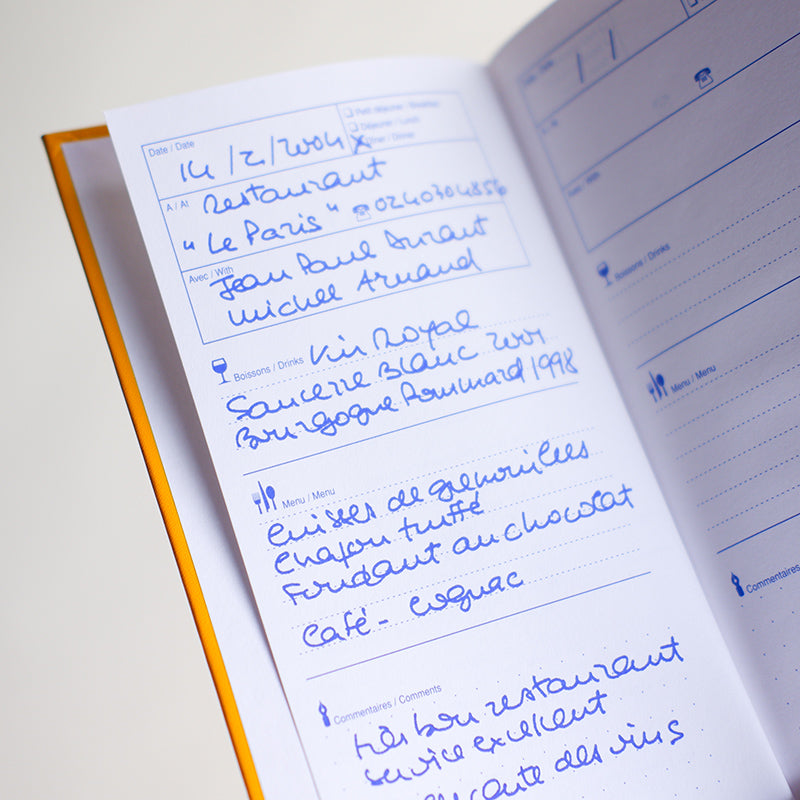 Date / Date
14 / 2 / 2004
Petit déjeuner / Breakfast
Déjeuner / Lunch
Dîner / Dinner
A / At
Restaurant
"Le Paris" 0240304856
Avec / With
Jean Paul Durant
Michel Arnaud
Boissons / Drinks
Vin Royal
Sancerre Blanc 2001
Bourgogne Pommard 1998
Menu / Menu
Cuisses de grenouilles
Chapon truffé
Fondant au chocolat
Café - Cognac
Commentaires / Comments
très bon restaurant
service excellent
carte des vins
/ /
With
Boissons / Drinks
Menu / Menu
Commentaires